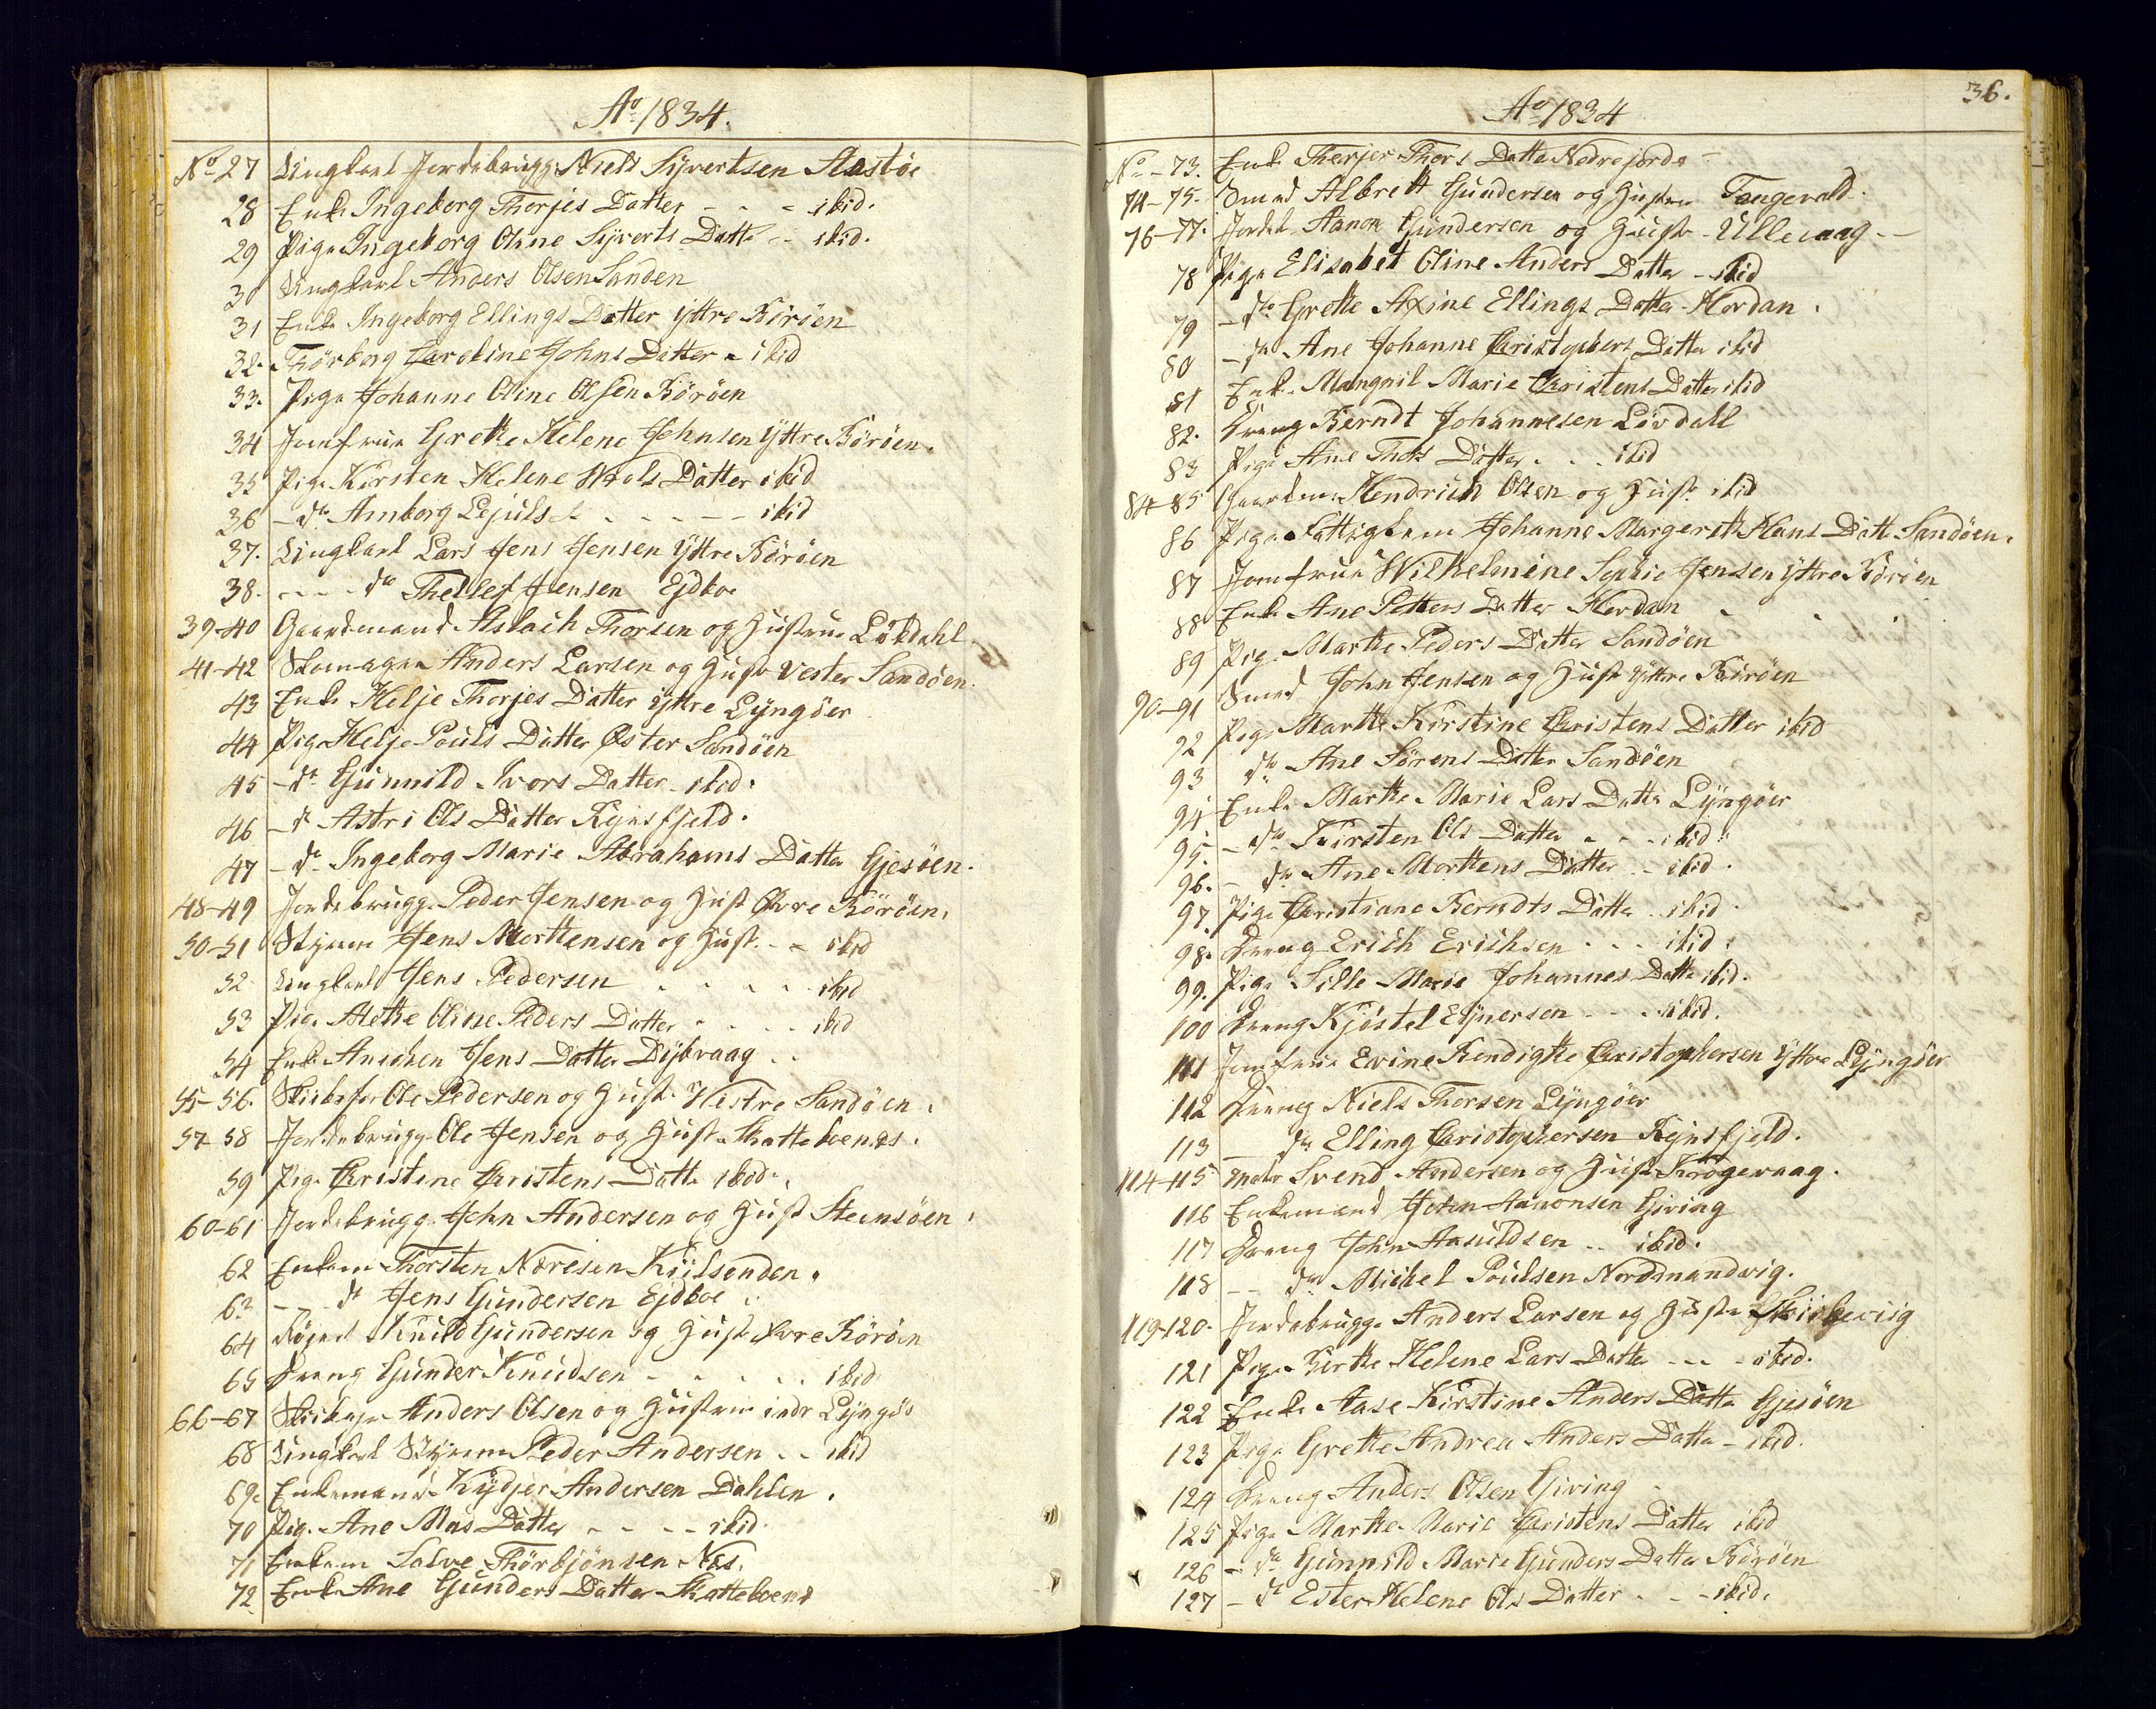 Ao 1834.
No 27 Ungkarl Jordebrugg. Niels Syvertsen Aastöe
28 Enke Ingeborg Therjes Datter - - - ibid.
29 Pige Ingeborg Oline Syverts Datt - - ibid.
30 Ungkarl Anders Olsen Sanden
31 Enke Ingeborg Ellings Datter Yttre Böröen
32. Thörborg Caroline Johns Datter - ibid
33. Pige Johanne Oline Olsen Böröen
34 Jomfrue Grethe Helene Johnsen Yttre Böröen.
35 Pige Kirsten Helene Niels Datter ibid
36 - do Amborg Lejuls - - - - - ibid
37. Ungkarl Lars Jens Jensen Yttre Böröen
38. - - - do Thellef Jensen Ejdboe
39-40 Gaardmand Aslach Thorsen og Hustrue Lökdahl
41-42 Skomager Anders Larsen og Hustr Vester Sandöen.
43 Enke Helje Thorjes Datter Yttre Lyngöer
44 Pige Helje Pouls Datter Öster Sandöen
45 - do Gunnild Ivors Datter - ibid.
46 - do Astri Ols Datter Rejnsfjeld.
47 - do Ingeborg Marie Abrahams Datter Gjesöen.
48-49 Jordebrugg. Peder Jensen og Hust Övre Böröen.
50-51 Styrm Jens Morttensen og Hust. - - ibid
52 Ungkarl Jens Pedersen - - - - - ibid
53 Pige Methe Oline Peders Datter - - - - ibid
54 Enke Jens Datter Dybvaag - -
55-56. Skibsför Ole Pedersen og Hust. Westre Sandöen.
57-58 Jordebrugg Ole Jensen og Hust. Skatteboends.
59 Pige Christine Christens Datte ibid.
60-61 Jordebrugg. John Andersen og Hust Steensöen.
62 Enkem Thorsten Næresen Kiilsenden.
63 - - do Jens Gundersen Ejdboe
64 Knud Gundersen og Hust Övre Böröen
65 Dreng Gunder Knudsen - - - - - ibid
66-67 Skibsför Anders Olsen og Hustrue indr Lyngöe
68 Ungkarl Styrm Peder Andersen - - ibid
69. Enkemand Kydjer Andersen Dahlen.
70 Pige Ane Mas Datter - - - - ibid
71 Enkem Salve Thörbjönsen Næs.
72 Enke Ane Gunders Datter Skatteboend
36.
Ao 1834
No - 73. Enke Therjer Thors Datte Nedrejorde -
74-75. Smed Albrett Gundersen og Hustrue Tangevald.
76-77. Jordeb. Aanon Gundersen og Hustr - Ullevaag -
78 Pige Elisabet Oline Anders Datter - ibid
79 - do Grethe Axine Ellings Datter Hordan.
80 - do Ane Johanne Christophers Datter ibid
81 Enke Mangnil Marie Christens Datter ibid
82. Dreng Berndt Johannesen Lövdall
83 Pige Ane Thors Datter - - - ibid
84-85 Gaardm. Hendrich Olsen og Hustr ibid
86 Pige Fattiglem Johanne Margerth Hans Datt Sandöen.
87 Jomfrue Wilhelmine Sophie Jensen Yttre Böröen
88 Enke Ane Petters Datter Hordan
89 Pige Marthe Peders Datter Sandöen
90-91 Smed John Jensen og Hust Yttre Böröen
92 Pige Marthe Kirstine Christens Datter ibid
93 do Ane Sörens Datter Sandöen
94 Enke Marthe Marie Lars Datter Lyngöer
95. - do Kirsten Ols Datter - - - ibid.
96. - do Ane Morttens Datter - - ibid.
97. Pige Christiane Berndts Datte - ibid
98. Dreng Erich Erichsen - - - ibid.
99. Pige Sille Marie Johannes Datte ibid.
100 Dreng Kjöstel Ejnersen - - - ibid.
111 Jomfrue Evine Bendigte Christophersen Yttre Lyngöer
112 Dreng Niels Thorsen Lyngöer
113 - do Elling Christophersen Rejnsfjeld.
114-115 Svend Andersen og Hust. Krogevaag.
116 Enkemand John Aanonsen Giving
117 Dreng John Aasuldsen - - ibid.
118 - - do Mickel Poulsen Nordmandvig.
119-120. Jordebrugg. Anders Larsen og Hustr Skirkeviig
121 Pige Berthe Helene Lars Datter - - - ibid.
122 Enke Aase Kirstine Anders Datte Gjesöen
123 Pige Grethe Andrea Anders Datte - ibid.
124 Dreng Anders Olsen Giving
125 Pige Marthe Marie Christens Datter ibid
126 - do Gunnild Marie Gunders Datter Böröen
127 - do Ester Helene Ols Datter - - - ibid.